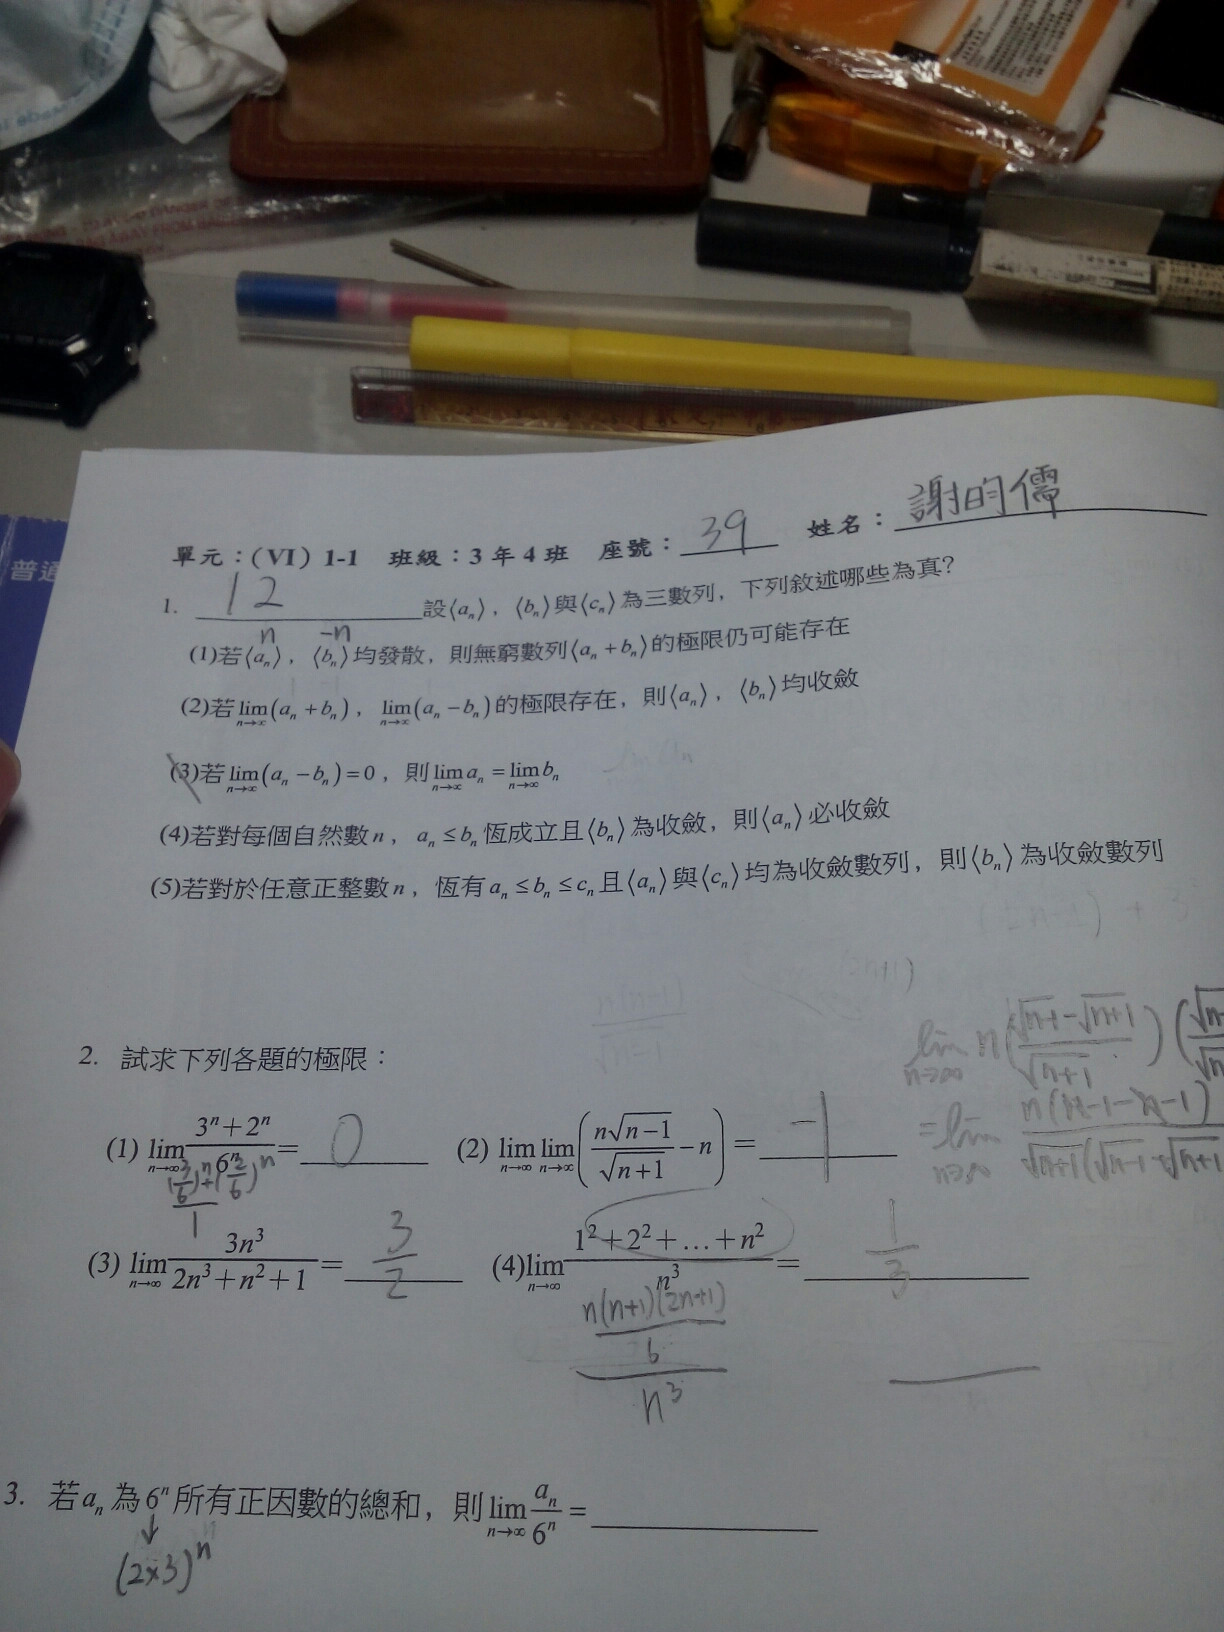 普通
單元：(VI) 1-1 班級：3年4班 座號：39 姓名：謝昀儒
1. 12 設⟨aₙ⟩，⟨bₙ⟩與⟨cₙ⟩為三數列，下列敘述哪些為真？
n -n
(1)若⟨aₙ⟩，⟨bₙ⟩均發散，則無窮數列⟨aₙ+bₙ⟩的極限仍可能存在
(2)若lim(aₙ+bₙ)，lim(aₙ−bₙ)的極限存在，則⟨aₙ⟩，⟨bₙ⟩均收斂
n→∞ n→∞
(3)若lim(aₙ−bₙ)=0，則lim aₙ=lim bₙ
n→∞ n→∞ n→∞
(4)若對每個自然數n，aₙ≤bₙ恆成立且⟨bₙ⟩為收斂，則⟨aₙ⟩必收斂
(5)若對於任意正整數n，恆有aₙ≤bₙ≤cₙ且⟨aₙ⟩與⟨cₙ⟩均為收斂數列，則⟨bₙ⟩為收斂數列
lim n→∞ n((√n-1 − √n+1)/√n+1)
2. 試求下列各題的極限：
=lim n→∞ n(n-1-n-1)/(√n+1(√n-1+√n+1
(1) lim n→∞ (3ⁿ+2ⁿ)/6ⁿ = 0 (2) lim n→∞ lim n→∞ (n√n−1/√n+1 − n) = -1
((3/6)ⁿ+(2/6)ⁿ)/1
(3) lim n→∞ 3n³/(2n³+n²+1) = 3/2 (4)lim n→∞ (1²+2²+…+n²)/n³ = 1/3
n(n+1)(2n+1)
6
n³
3. 若aₙ為6ⁿ所有正因數的總和，則lim n→∞ aₙ/6ⁿ =
(2×3)ⁿ